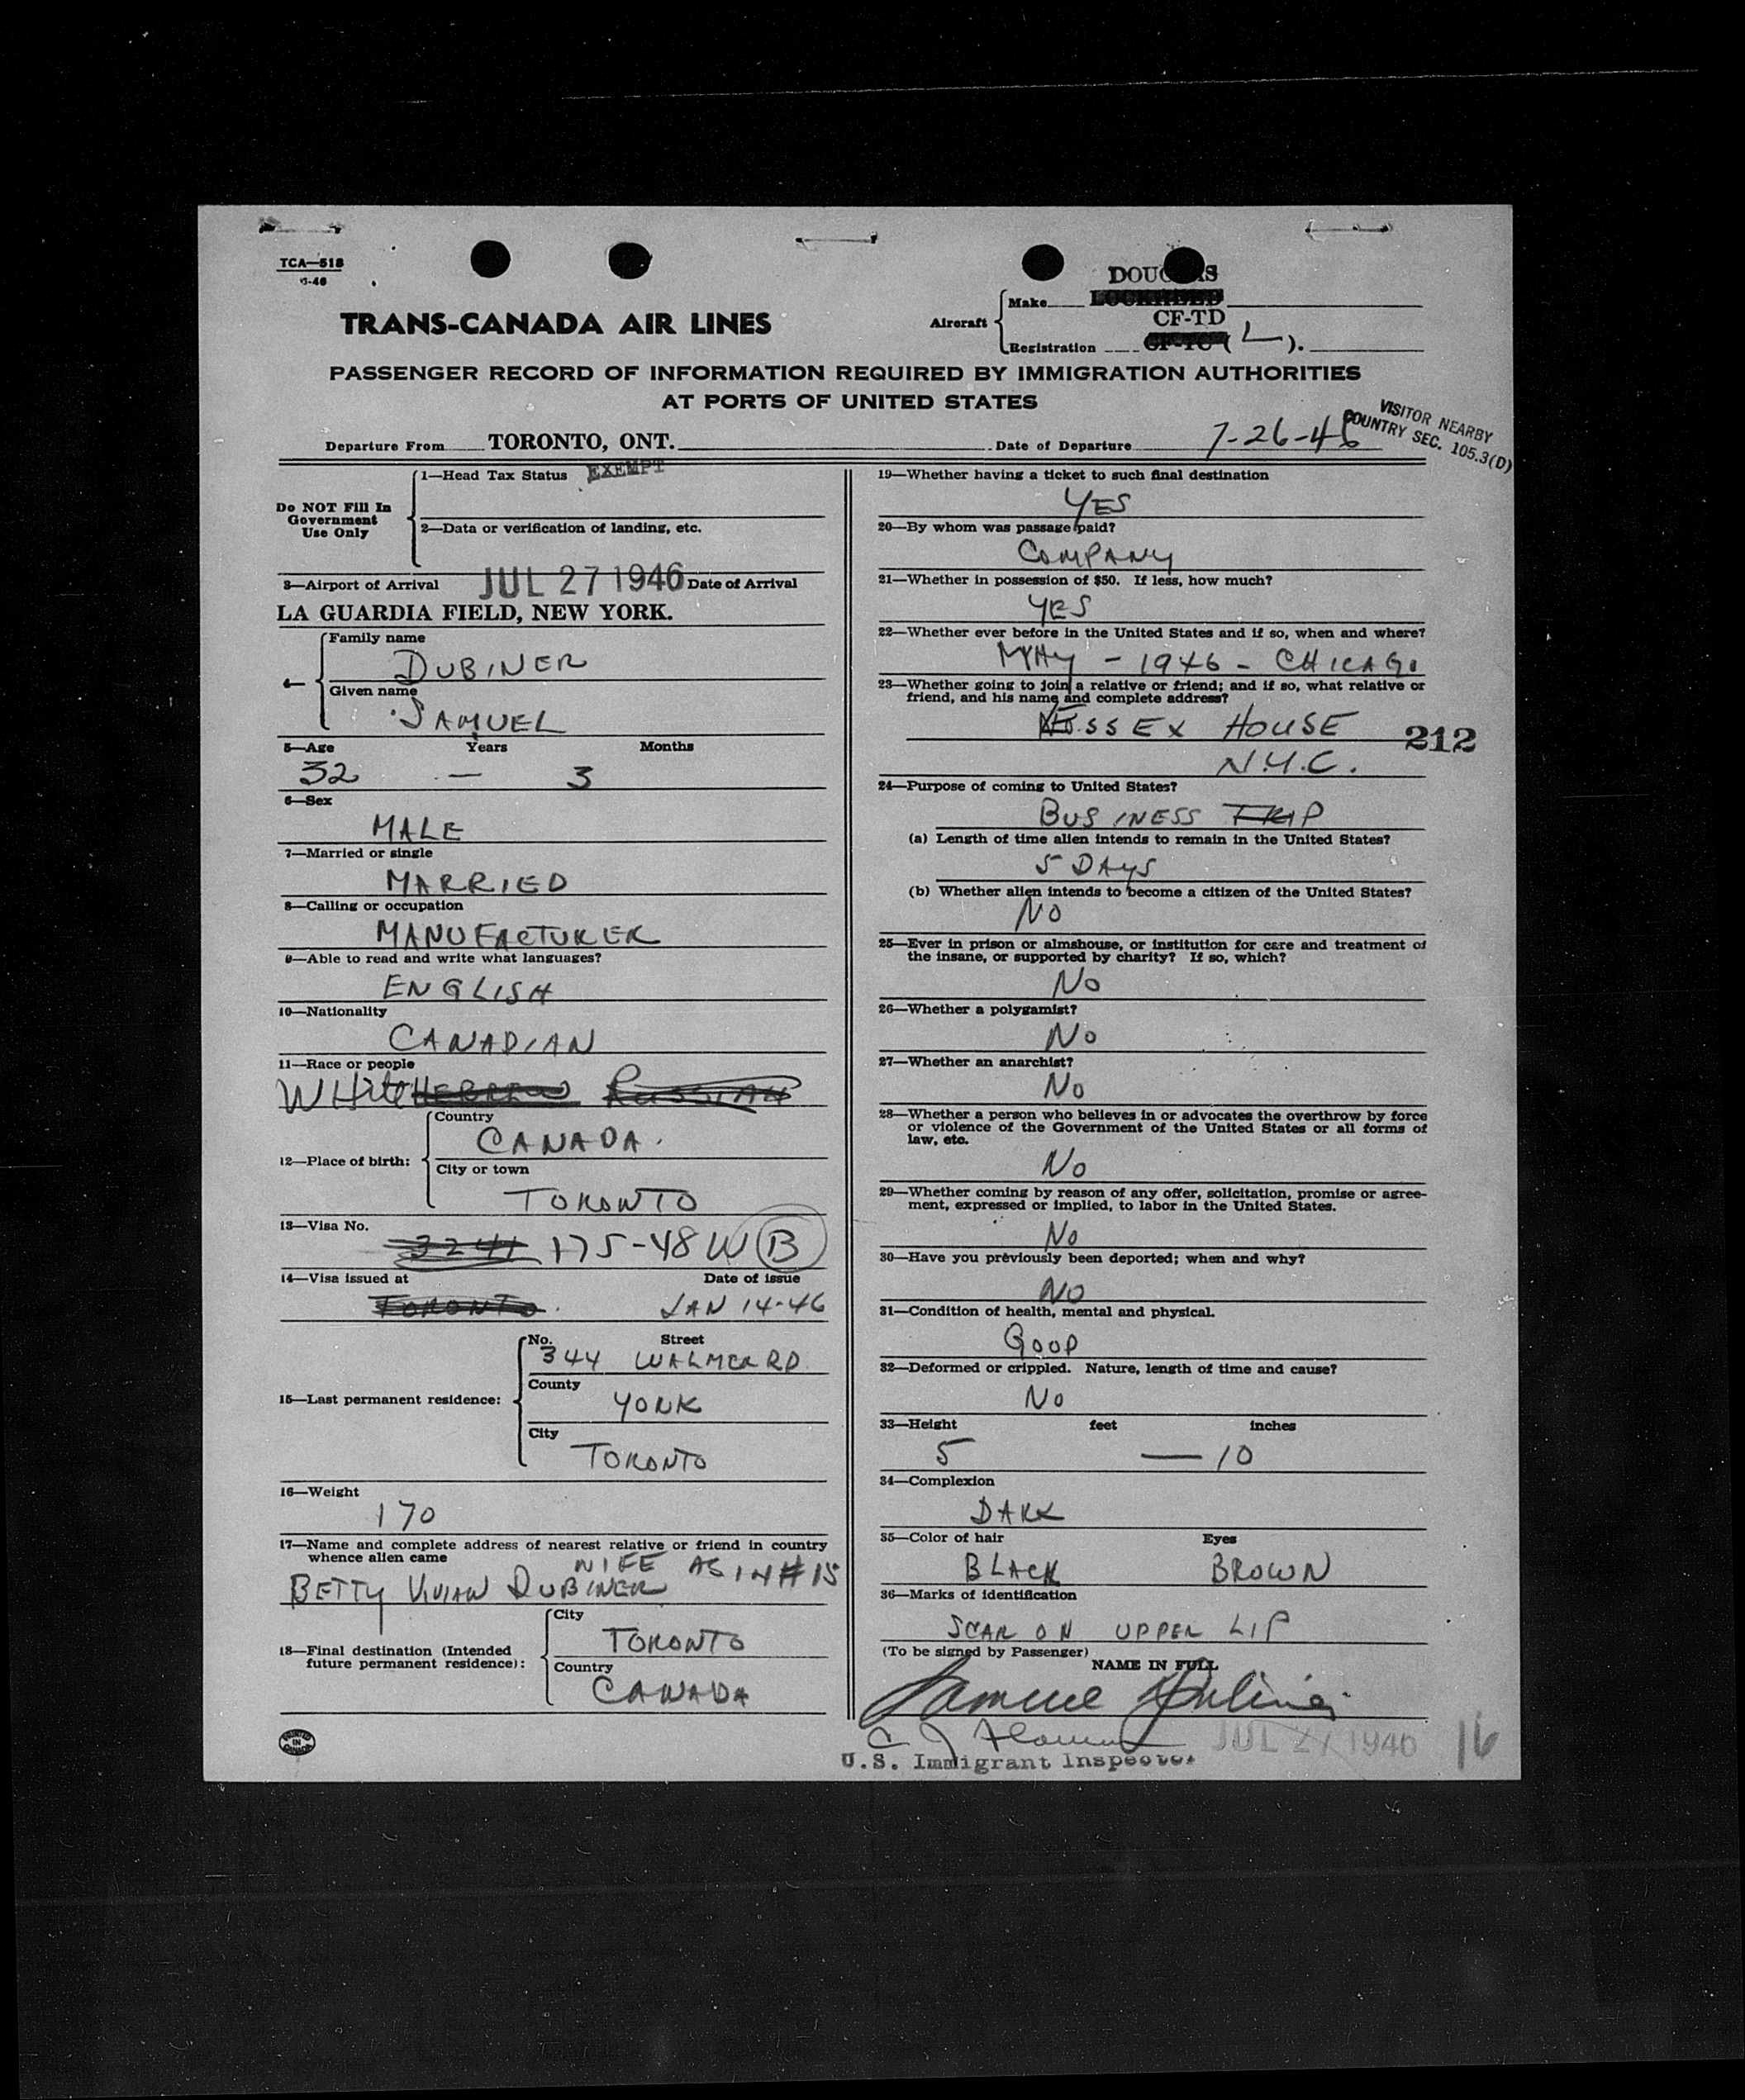 TCA—518
5-46
DOUGLAS
Make LOCKHEED
TRANS-CANADA AIR LINES
Aircraft
CF-TD
Registration CF-TC ( L ).
PASSENGER RECORD OF INFORMATION REQUIRED BY IMMIGRATION AUTHORITIES
AT PORTS OF UNITED STATES
VISITOR NEARBY
COUNTRY SEC. 105.3(D)
Departure From TORONTO, ONT. Date of Departure 7-26-46
Do NOT Fill In
Government
Use Only
1—Head Tax Status EXEMPT
2—Data or verification of landing, etc.
3—Airport of Arrival JUL 27 1946 Date of Arrival
LA GUARDIA FIELD, NEW YORK.
4—
Family name
DUBINER
Given name
SAMUEL
5—Age Years Months
32 — 3
6—Sex
MALE
7—Married or single
MARRIED
8—Calling or occupation
MANUFACTURER
9—Able to read and write what languages?
ENGLISH
10—Nationality
CANADIAN
11—Race or people
WHite HEBREW RUSSIAN
12—Place of birth:
Country
CANADA.
City or town
TORONTO
13—Visa No.
3241 175-48 W B
14—Visa issued at Date of issue
TORONTO. JAN 14-46
15—Last permanent residence:
No. Street
344 WALMER RD.
County
YORK
City
TORONTO
16—Weight
170
17—Name and complete address of nearest relative or friend in country
whence alien came
WIFE AS IN # 15
BETTY VIVIAN DUBINER
18—Final destination (Intended
future permanent residence):
City
TORONTO
Country
CANADA
PRINTED
IN
CANADA
19—Whether having a ticket to such final destination
YES
20—By whom was passage paid?
COMPANY
21—Whether in possession of $50. If less, how much?
YES
22—Whether ever before in the United States and if so, when and where?
MAY - 1946 - CHICAGO
23—Whether going to join a relative or friend; and if so, what relative or
friend, and his name and complete address?
ESSEX HOUSE
212
N.Y.C.
24—Purpose of coming to United States?
BUSINESS TRIP
(a) Length of time alien intends to remain in the United States?
5 DAYS
(b) Whether alien intends to become a citizen of the United States?
NO
25—Ever in prison or almshouse, or institution for care and treatment of
the insane, or supported by charity? If so, which?
No
26—Whether a polygamist?
No
27—Whether an anarchist?
No
28—Whether a person who believes in or advocates the overthrow by force
or violence of the Government of the United States or all forms of
law, etc.
No
29—Whether coming by reason of any offer, solicitation, promise or agree-
ment, expressed or implied, to labor in the United States.
No
30—Have you previously been deported; when and why?
NO
31—Condition of health, mental and physical.
GOOD
32—Deformed or crippled. Nature, length of time and cause?
No
33—Height feet inches
5 — 10
34—Complexion
DARK
35—Color of hair Eyes
BLACK BROWN
36—Marks of identification
SCAR ON UPPER LIP
(To be signed by Passenger)
NAME IN FULL
Samuel Dubiner
C J
JUL 27 1946 16
U.S. Immigrant Inspector